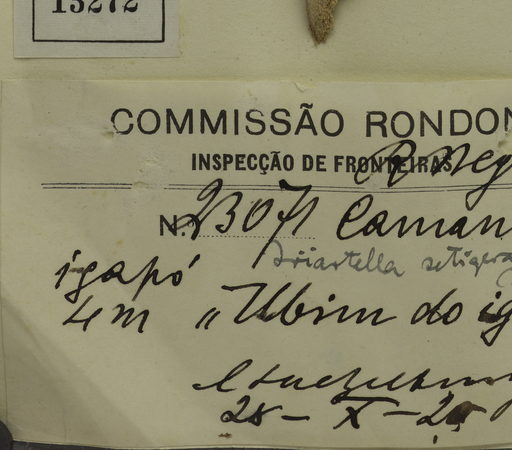 13272
COMMISSÃO RONDON
R. Neg
INSPECÇÃO DE FRONTEIRAS
N.º 23071 Caman
Iriartella setigera
igapó
4 m "Ubim do ig
28 - X - 28